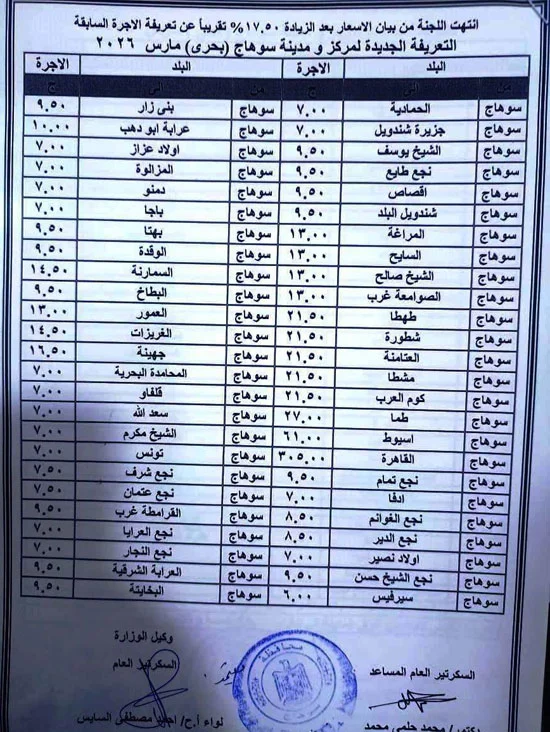 انتهت اللجنة من بيان الاسعار بعد الزيادة ١٧.٥٠ % تقريباً عن تعريفة الاجرة السابقة
التعريفة الجديدة لمركز و مدينة سوهاج (بحرى) مارس ٢٠٢٦
البلد الاجرة البلد الاجرة
من الى ج من الى ج
سوهاج الحمادية ٧.٠٠ سوهاج بنى زار ٩.٥٠
سوهاج جزيرة شندويل ٧.٠٠ سوهاج عرابة ابو دهب ١٠.٠٠
سوهاج الشيخ يوسف ٩.٥٠ سوهاج اولاد عزاز ٧.٠٠
سوهاج نجع طايع ٩.٥٠ سوهاج المزالوة ٧.٠٠
سوهاج اقصاص ٩.٥٠ سوهاج دمنو ٧.٠٠
سوهاج شندويل البلد ٩.٥٠ سوهاج باجا ٧.٠٠
سوهاج المراغة ١٣.٠٠ سوهاج بهتا ٩.٥٠
سوهاج السايح ١٣.٠٠ سوهاج الوقدة ٩.٥٠
سوهاج الشيخ صالح ١٣.٠٠ سوهاج السمارنة ١٤.٥٠
سوهاج الصوامعة غرب ١٣.٠٠ سوهاج البطاخ ٩.٥٠
سوهاج طهطا ٢١.٥٠ سوهاج العمور ١٣.٠٠
سوهاج شطورة ٢١.٥٠ سوهاج الغريزات ١٤.٥٠
سوهاج العتامنة ٢١.٥٠ سوهاج جهينة ١٦.٥٠
سوهاج مشطا ٢١.٥٠ سوهاج المحامدة البحرية ٧.٠٠
سوهاج كوم العرب ٢١.٥٠ سوهاج قلفاو ٧.٠٠
سوهاج طما ٢٧.٠٠ سوهاج سعد الله ٧.٠٠
سوهاج اسيوط ٦١.٠٠ سوهاج الشيخ مكرم ٧.٠٠
سوهاج القاهرة ٣٠٥.٠٠ سوهاج تونس ٧.٠٠
سوهاج نجع تمام ٩.٥٠ سوهاج نجع شرف ٧.٥٠
سوهاج ادفا ٧.٠٠ سوهاج نجع عتمان ٧.٥٠
سوهاج نجع الغوانم ٨.٥٠ سوهاج القرامطة غرب ٩.٥٠
سوهاج نجع الدير ٨.٥٠ سوهاج نجع العرايا ٧.٠٠
سوهاج اولاد نصير ٧.٠٠ سوهاج نجع النجار ٧.٠٠
سوهاج نجع الشيخ حسن ٩.٥٠ سوهاج العرابة الشرقية ٩.٥٠
سوهاج سيرفيس ٦.٠٠ سوهاج البخايتة ٩.٥٠
وكيل الوزارة
السكرتير العام المساعد السكرتير العام
محافظة
دكتور/ محمد حلمى محمد لواء أ.ح/ مصطفى السايس